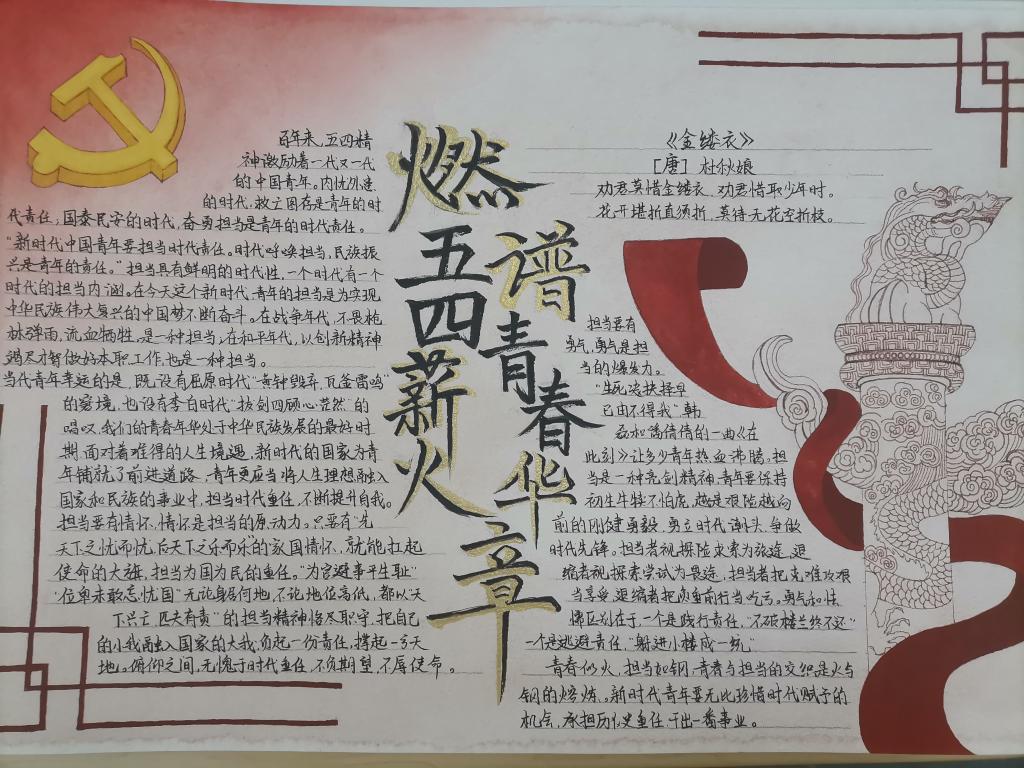 燃五四薪火
谱青春华章
百年来,五四精
神激励着一代又一代
的中国青年。内忧外患
的时代,救亡图存是青年的时
代责任;国泰民安的时代,奋勇担当是青年的时代责任。
“新时代中国青年要担当时代责任。时代呼唤担当,民族振
兴是青年的责任。”担当具有鲜明的时代性,一个时代有一个
时代的担当内涵。在今天这个新时代,青年的担当是为实现
中华民族伟大复兴的中国梦不断奋斗。在战争年代,不畏枪
林弹雨,流血牺牲,是一种担当;在和平年代,以创新精神
竭尽才智做好本职工作,也是一种担当。
当代青年幸运的是,既没有屈原时代“黄钟毁弃,瓦釜雷鸣”
的窘境,也没有李白时代“拔剑四顾心茫然”的
喟叹,我们的青春年华处于中华民族发展的最好时
期,面对着难得的人生境遇。新时代的国家为青
年铺就了前进道路,青年更应当将人生理想融入
国家和民族的事业中,担当时代重任,不断提升自我。
担当要有情怀,情怀是担当的原动力。只要有“先
天下之忧而忧,后天下之乐而乐”的家国情怀,就能扛起
使命的大旗,担当为国为民的重任。“为官避事平生耻”
“位卑未敢忘忧国”无论身居何地,不论地位高低,都以“天
下兴亡,匹夫有责”的担当精神恪尽职守,把自己
的小我融入国家的大我,负起一份责任,撑起一方天
地。俯仰之间,无愧于时代重任,不负期望,不辱使命。
《金缕衣》
[唐] 杜秋娘
劝君莫惜金缕衣,劝君惜取少年时。
花开堪折直须折,莫待无花空折枝。
担当要有
勇气,勇气是担
当的爆发力。
“生死决抉择早
已由不得我”韩
磊和谭维维的一曲《在
此刻》让多少青年热血沸腾。担
当是一种亮剑精神,青年要保持
初生牛犊不怕虎,越是艰险越向
前的刚健勇毅,勇立时代潮头,争做
时代先锋。担当者视探险求索为坦途,退
缩者视探索尝试为畏途,担当者把克难攻艰
当享受,退缩者把负重前行当吃亏。勇气和怯
懦区别在于,一个是践行责任,“不破楼兰终不还”
一个是逃避责任,“躲进小楼成一统”
青春似火,担当如钢,青春与担当的交织是火与
钢的熔炼。新时代青年要无比珍惜时代赋予的
机会,承担历史重任,干出一番事业。